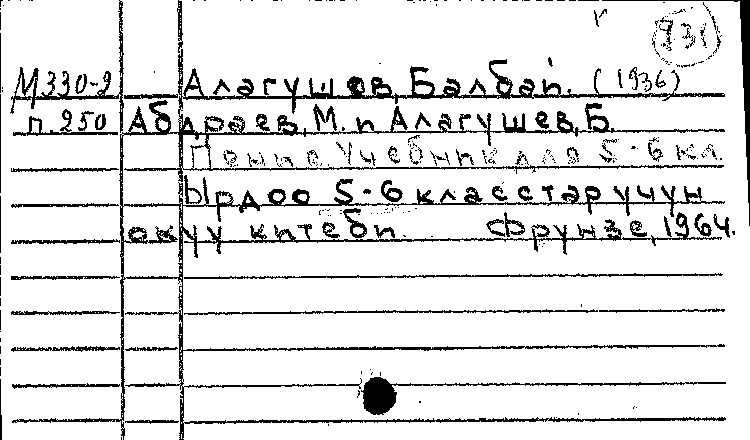 931
М330-2 Алагушов, Балбай. (1936)
п.250 Абдраев, М. и Алагушев, Б.
Пение. Учебник для 5-6 кл.
Ырдоо 5-6 класстар учун
окуу китеби. Фрунзе, 1964.